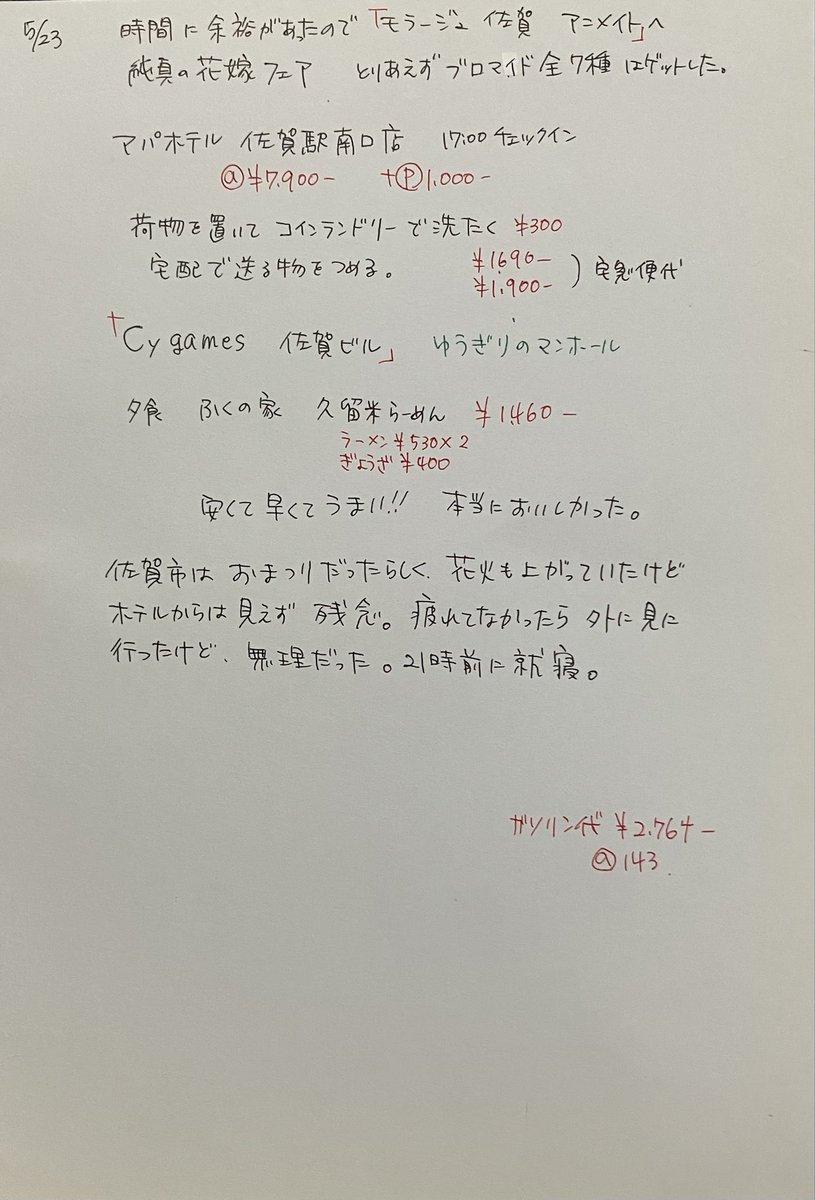 5/23 時間に余裕があったので「モラージュ 佐賀 アニメイト」へ
純真の花嫁フェア とりあえずブロマイド全7種はゲットした。
アパホテル 佐賀駅南口店 17:00 チェックイン
@¥7.900- +Ⓟ1.000-
荷物を置いて コインランドリーで洗たく ¥300
宅配で送る物をつめる。 ¥1.690-
¥1.900- ) 宅急便代
「Cygames 佐賀ビル」 ゆうぎりのマンホール
夕食 ふくの家 久留米らーめん ¥1.460-
ラーメン¥530×2
ぎょうざ¥400
安くて早くてうまい!! 本当においしかった。
佐賀市はおまつりだったらしく、花火も上がっていたけど
ホテルからは見えず残念。疲れてなかったら外に見に
行ったけど、無理だった。21時前に就寝。
ガソリン代 ¥2.764-
@143.